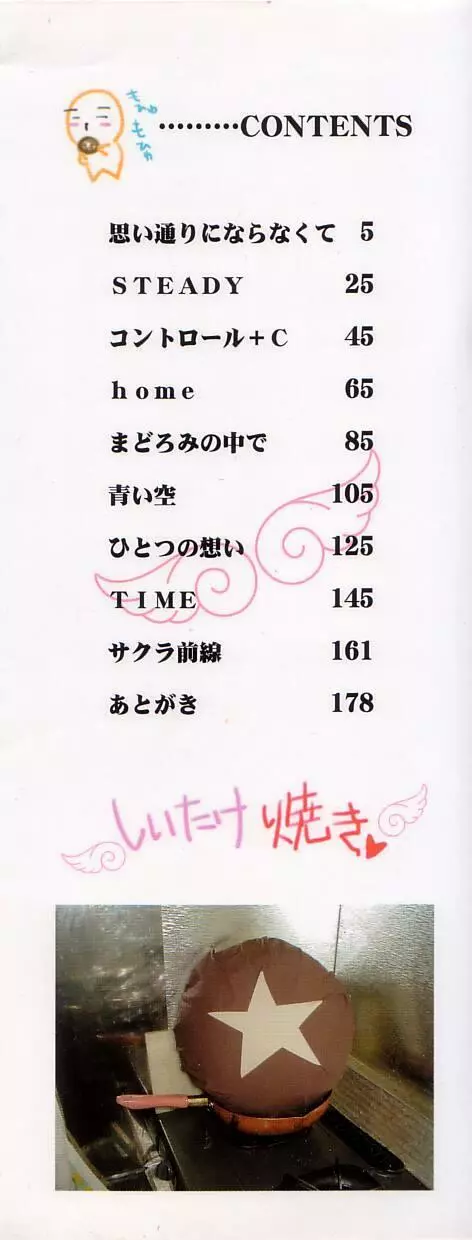 もひゅ
もひゅ
………CONTENTS
思い通りにならなくて 5
STEADY 25
コントロール+C 45
home 65
まどろみの中で 85
青い空 105
ひとつの想い 125
TIME 145
サクラ前線 161
あとがき 178
しいたけ 焼き